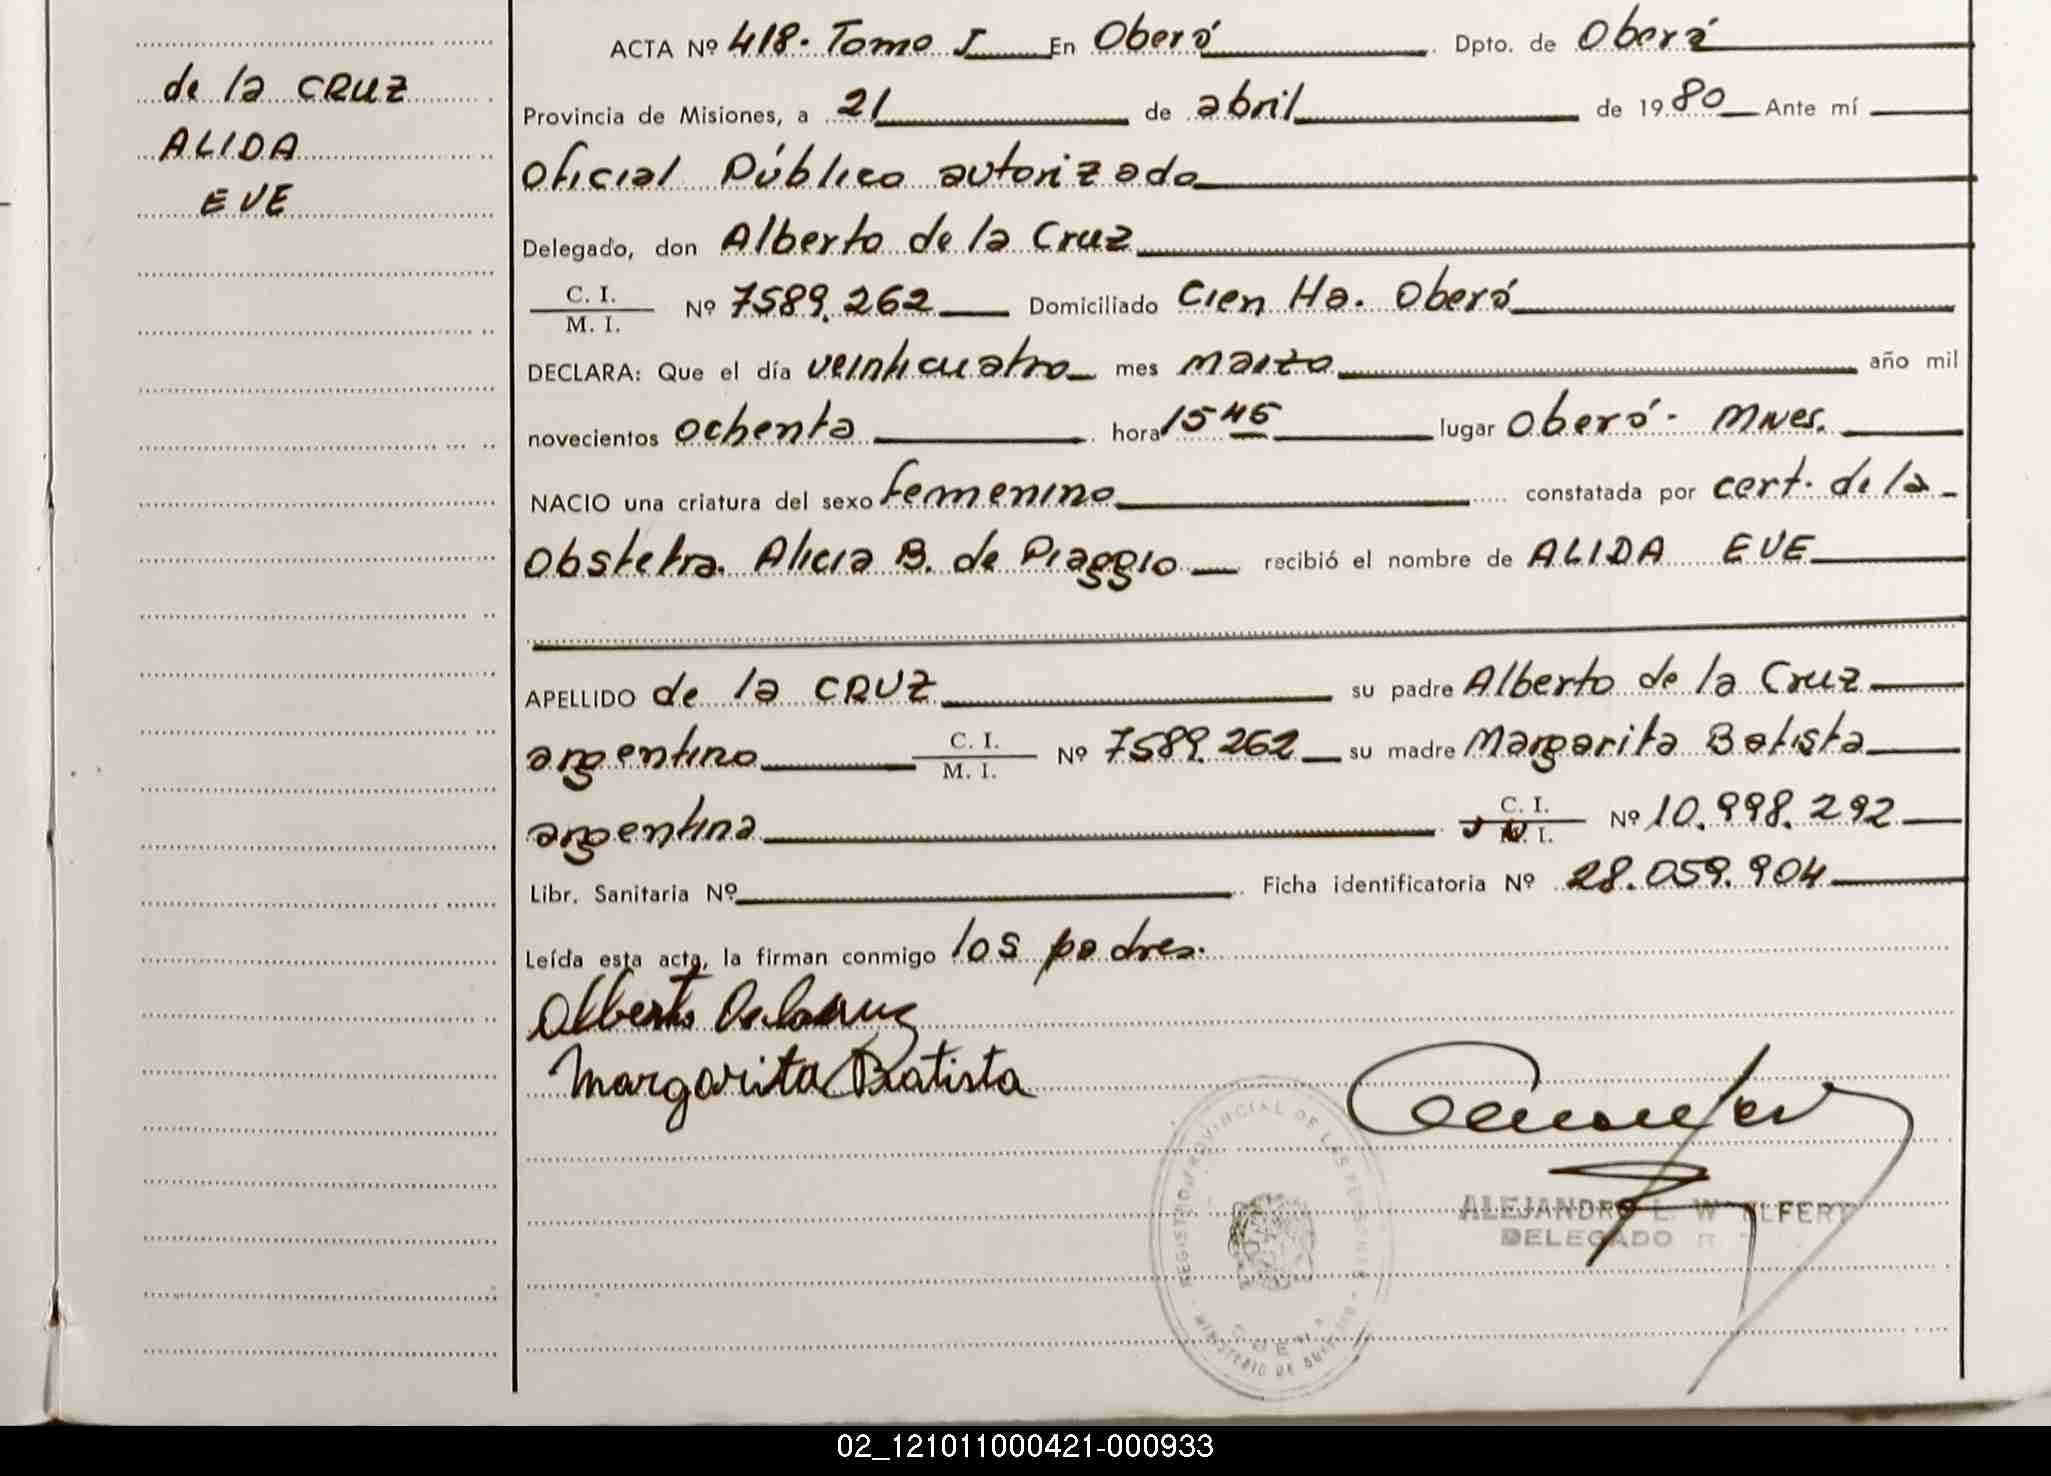 de la CRUZ
ALIDA
EVE
ACTA Nº 418. Tomo I En Oberá Dpto. de Oberá
Provincia de Misiones, a 21 de abril de 1980 Ante mí
Oficial Público autorizado
Delegado, don Alberto de la Cruz
C. I.
M. I. Nº 7589.262 Domiciliado Cien Ha. Oberá
DECLARA: Que el día veinticuatro mes marzo año mil
novecientos ochenta hora 15 45 lugar Oberá - Mnes.
NACIO una criatura del sexo femenino constatada por cert. de la
Obstetra. Alicia B. de Piaggio recibió el nombre de ALIDA EVE
APELLIDO de la CRUZ su padre Alberto de la Cruz
argentino C. I. M. I. Nº 7589.262 su madre Margarita Batista
argentina C. I. Nº 10.998.292
Libr. Sanitaria Nº Ficha identificatoria Nº 28.059.904
Leída esta acta, la firman conmigo los padres.
Alberto Delacruz
Margarita Batista
REGISTRO PROVINCIAL DE LAS PERSONAS
MINISTERIO DE
ALEJANDRO L.
DELEGADO
02_121011000421-000933